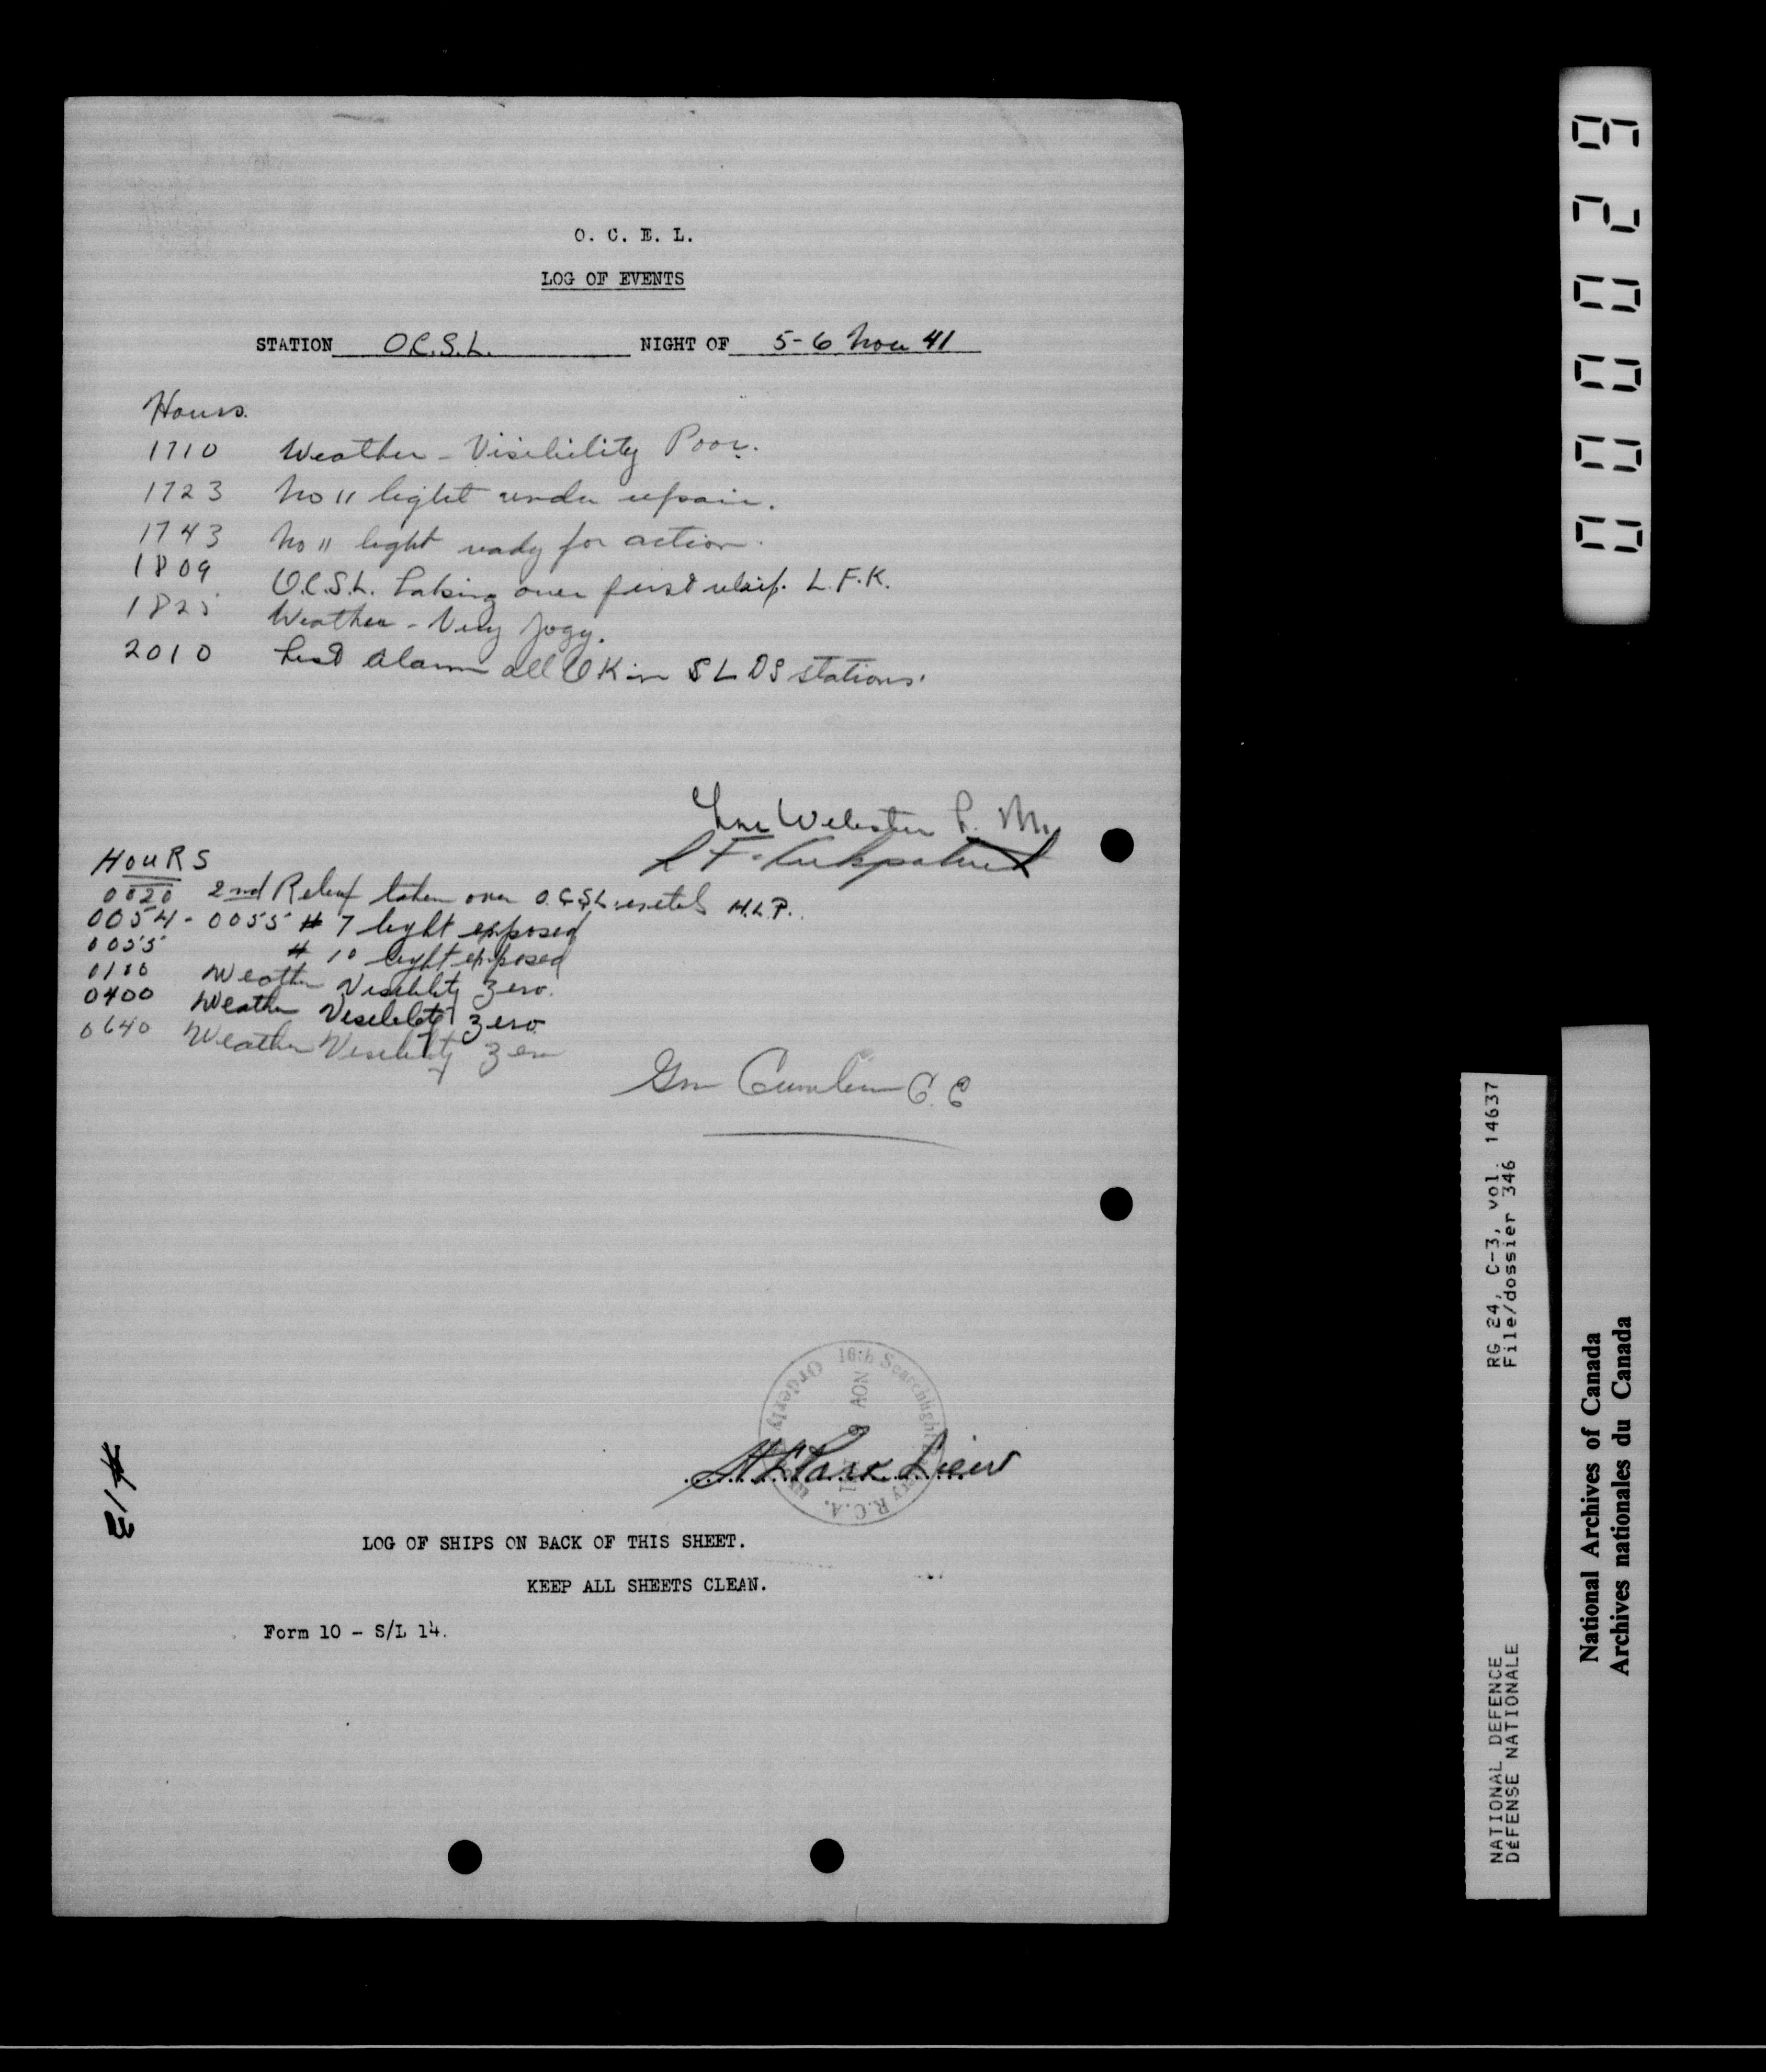 O. C. E. L.
LOG OF EVENTS
STATION O.C.S.L. NIGHT OF 5-6 Nov 41
Hours.
1710 Weather - Visibility Poor.
1723 No 11 light under repair.
1743 No 11 light ready for action.
1809 O.C.S.L. taking over first relief. L.F.K.
1825 Weather - Very fogy.
2010 Test Alarm all OK in S L D S stations.
Gnr Webster L. M.
L F Kirkpatrick
HOURS
0020 2nd Relief taken over O.C.S.L. H.L.P.
0054 - 0055 # 7 light exposed
0055 # 10 light exposed
0100 Weather Visibility Zero.
0400 Weather Visibility Zero
0640 Weather Visibility Zero
Gnr C. C
10th Searchlight Battery R.C.A.
Orderly
NOV 6
H L Park Lieut
#13
LOG OF SHIPS ON BACK OF THIS SHEET.
KEEP ALL SHEETS CLEAN.
Form 10 - S/L 14.
000029
RG 24, C-3, vol. 14637
File/dossier 346
NATIONAL DEFENCE
DÉFENSE NATIONALE
National Archives of Canada
Archives nationales du Canada